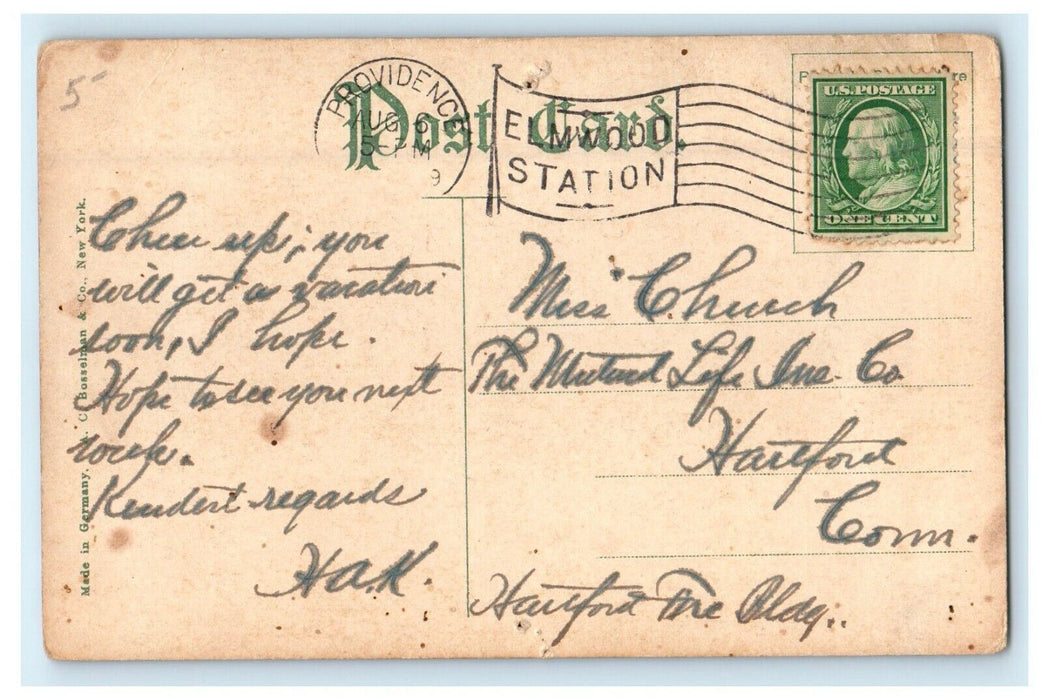 5-
Post Card.
PROVIDENCE
AUG 6
5-PM
9
ELMWOOD
STATION
U.S. POSTAGE
ONE CENT
Cheer up; you
will get a vacation
soon, I hope.
Hope to see you next
week.
Kindest regards
H.A.K.
Miss Church
The Mutual Life Ins. Co
Hartford
Conn.
Hartford Fire Bldg..
Made in Germany. A. C. Bosselman & Co., New York.